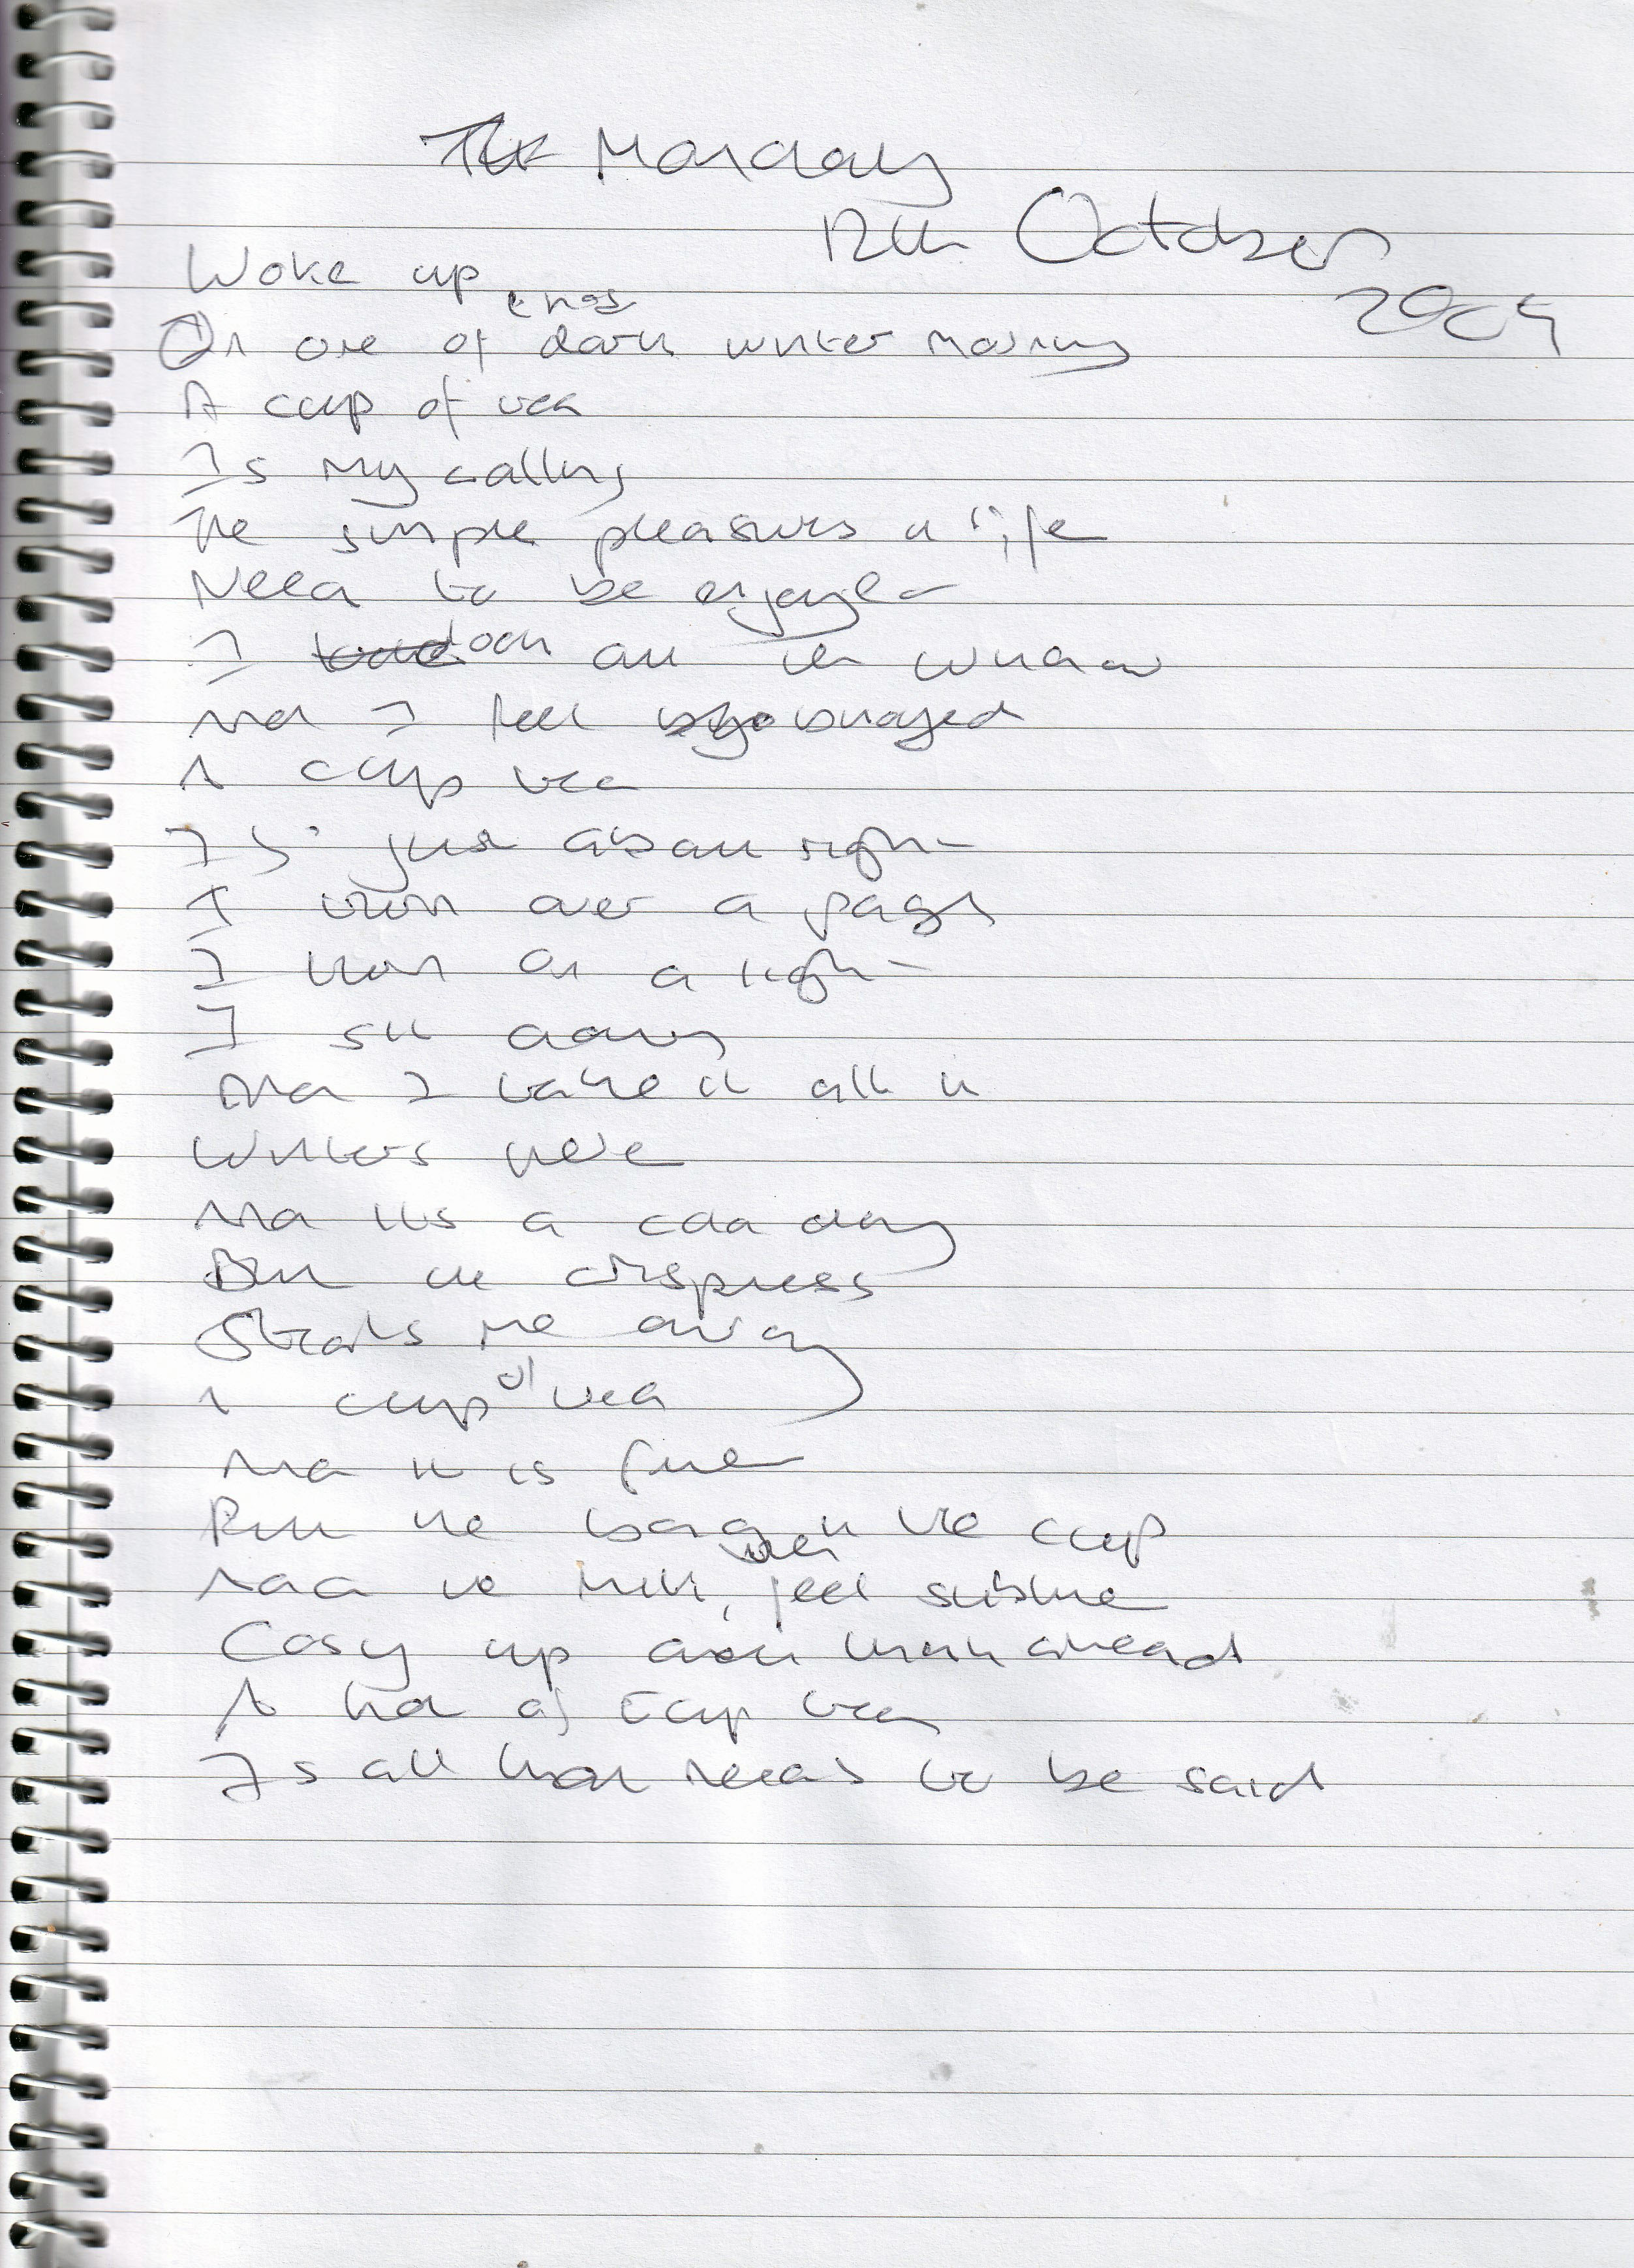 Monday
12th October
2009
Woke up
On one of those dark winter morning
A cup of tea
Is my calling
The simple pleasures in life
Need to be enjoyed
I look out the window
And I feel buoyed
A cup tea
Is just about right
I turn over a page
I turn on a light
I sit down
And I take it all in
Winters here
And its a cold day
But the crispness
Steals me away
A cup of tea
And it is fine
Put the bag in the cup
Add the milk, feel sublime
Cosy up ahead
A hot of cup tea
Is all that needs to be said